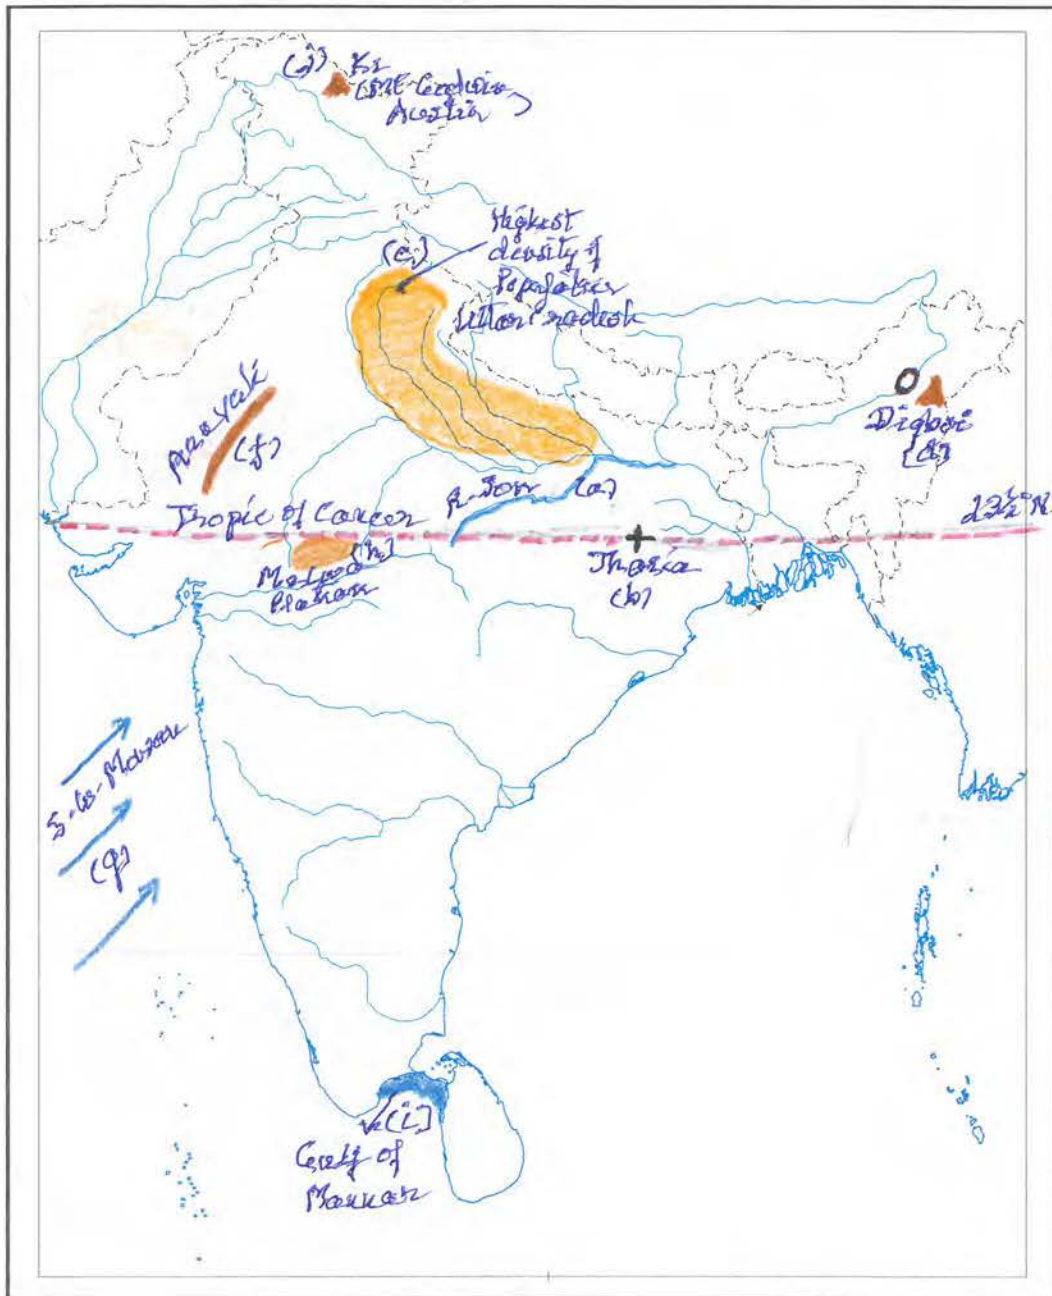 (j) K2
(MT. Godwin
Austin)
Highest
density of
Population
Uttar Pradesh
(e)
Aravali
(f)
Digboi
(d)
R. Son (a)
Tropic of Cancer
23½° N
Malwa (h)
Plateau
Jharia
(b)
S.W. Monsoon
(g)
(i)
Gulf of
Mannar